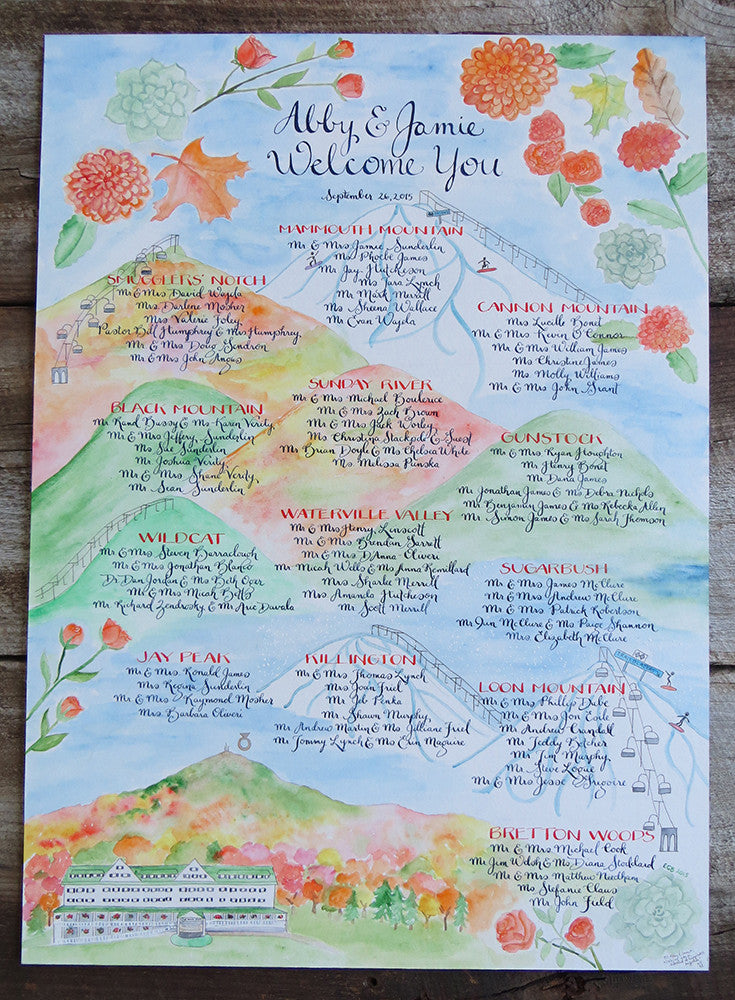 Abby & Jamie
Welcome You
September 26, 2015
MAMMOUTH MOUNTAIN
Mr & Mrs Jamie Sunderlin
Ms Phoebe James
Mr Jay Hutcheson
Ms Tara Lynch
Mr Mark Merrill
Ms Sheena Wallace
Mr Evan Wajda
SMUGGLERS' NOTCH
Mr & Mrs David Wajda
Mrs Darlene Mosher
Mrs Valerie Foley
Pastor Bill Humphrey & Mrs Humphrey,
Mr & Mrs Doug Gendron
Mr & Mrs John Angus
CANNON MOUNTAIN
Mrs Lucille Bonet
Mr & Mrs Kevin O'Connor
Mr & Mrs William James
Ms Christine James
Ms Molly Williams
Mr & Mrs John Grant
SUNDAY RIVER
Mr & Mrs Michael Boulerice
Mr & Mrs Zach Brown
Mr & Mrs Jack Worley
Ms Christina Stackpole & Guest
Mr Brian Doyle & Ms Chelsea White
Ms Melissa Penska
BLACK MOUNTAIN
Mr Rand Bussy & Ms Karen Verity,
Mr & Mrs Jeffery, Sunderlin
Ms Sue Sunderlin
Mr Joshua Verity
Mr & Mrs Shane Verity,
Mr Sean Sunderlin
GUNSTOCK
Mr & Mrs Ryan Houghton
Mr Henry Bonet
Mr Dana James
Mr Jonathan James & Ms Debra Nichols
Mr Benjamin James & Ms Rebecka Allen
Mr Simon James & Ms Sarah Thomson
WATERVILLE VALLEY
Mr & Mrs Henry, Linscott
Mr & Mrs Brendan Garrett
Mr & Mrs D'Anne Oliveri
Mr Micah Wells & Ms Anna Remillard
Mrs Sharlee Merrill
Mrs Amanda Hutcheson
Mr Scott Merrill
WILDCAT
Mr & Mrs Steven Barraclough
Mr & Mrs Jonathan Blanco
Dr Dan Jordan & Ms Beth
Mr & Mrs Micah Betts
Mr Richard Zendrosky & Mr Aric Davala
SUGARBUSH
Mr & Mrs James McClure
Mr & Mrs Andrew McClure
Mr & Mrs Patrick Robertson
Mr Jim McClure & Ms Paige Shannon
Mrs Elizabeth McClure
JAY PEAK
Mr & Mrs Ronald James
Mrs Regina Sunderlin
Mr & Mrs Raymond Mosher
Mrs Barbara Oliveri
KILLINGTON
Mr & Mrs Thomas Lynch
Mrs Joan Friel
Mr Jeb Penka
Mr Shawn Murphy,
Mr Andrew Martin & Ms Jilliane Friel
Mr Tommy Lynch & Ms Erin Maguire
LOON MOUNTAIN
Mr & Mrs Phillip Dube
Mr & Mrs Jon Cole
Mr Andrew Crandall
Mr Teddy Belcher
Mr Tim Murphy,
Mr Steve Logue
Mr & Mrs Jesse Gregoire
BRETTON WOODS
Mr & Mrs Michael Cook
Mr Jim Welsh & Ms Diana Stoddard
Mr & Mrs Matthew Needham
Ms Stefanie Claus
Mr John Field
LGB 2015